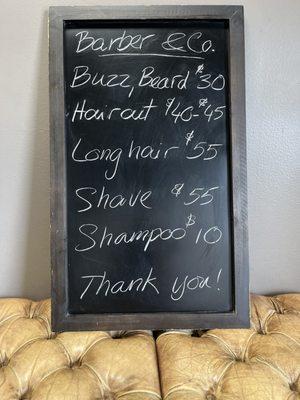 Barber & Co.
Buzz, Beard $30
Haircut $40-$45
Long hair $55
Shave $55
Shampoo $10
Thank you!